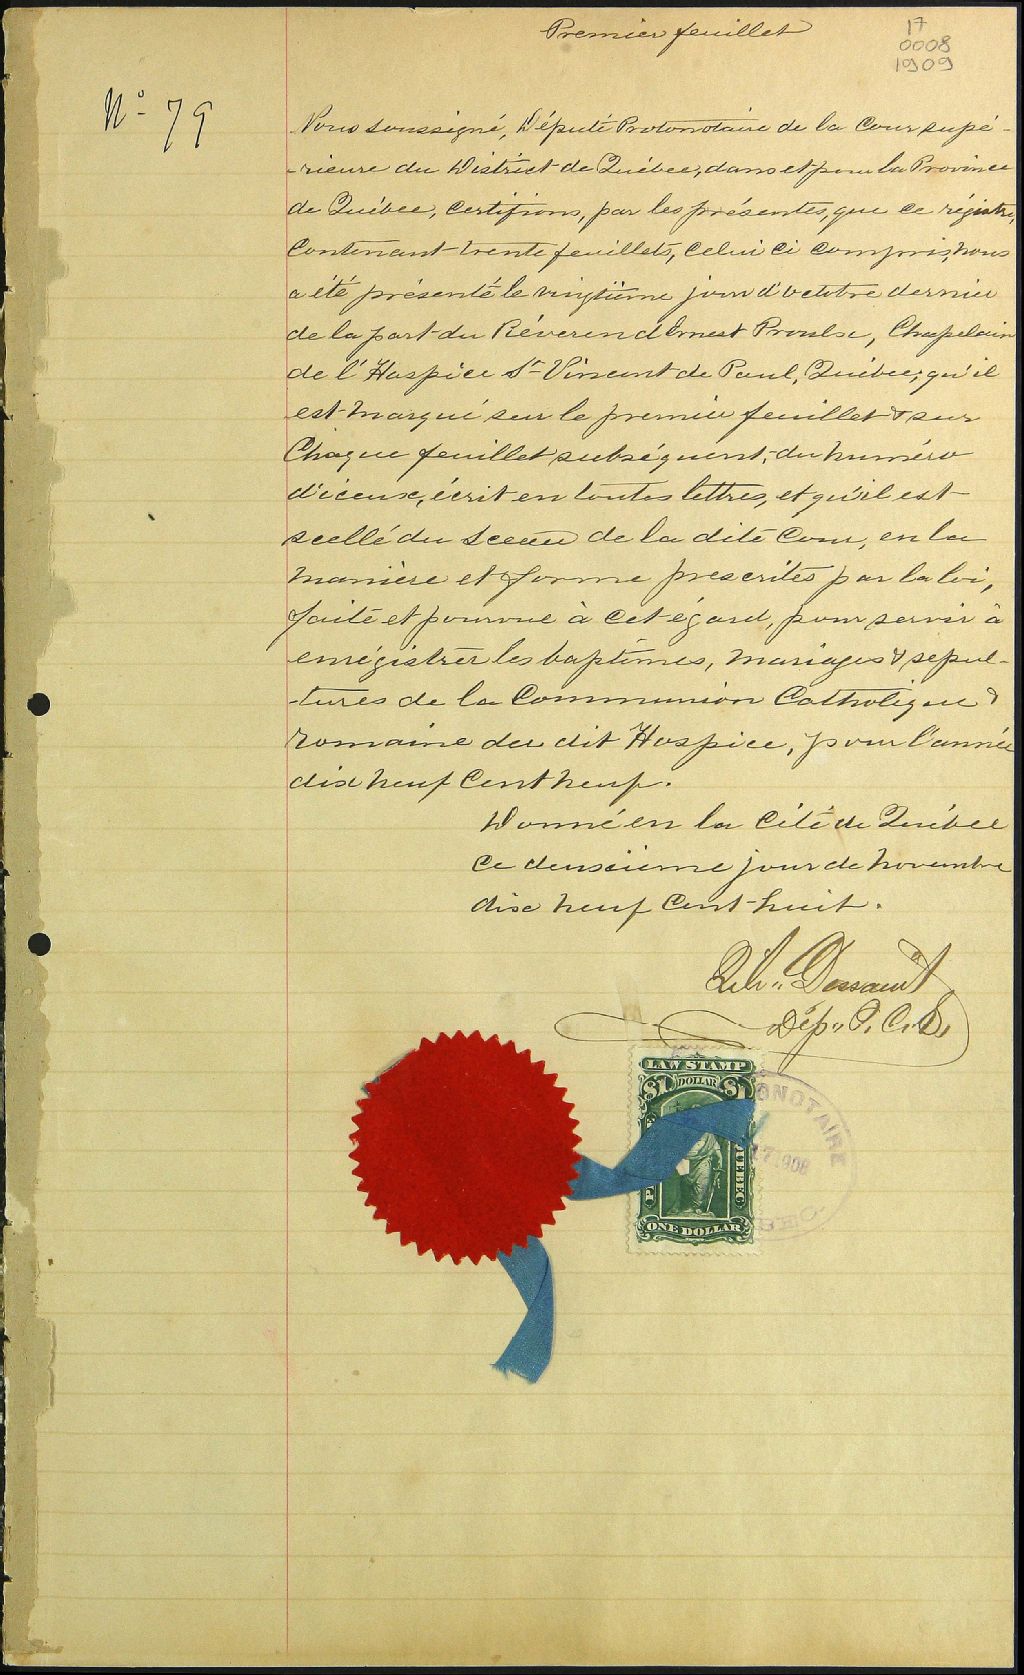 Premier feuillet
17
0008
1909
No 79
Nous soussigné, Député Protonotaire de la Cour supé-
-rieure du District de Québec, dans et pour la Province
de Québec, Certifions, par les présentes, que ce régistre,
Contenant trente feuillets, celui ci compris, nous
a été présenté le vingtième jour d'octobre dernier
de la part du Révérend Ernest Proulx, Chapelain
de l'Hospice St Vincent de Paul, Québec; qu'il
est marqué sur le premier feuillet & sur
Chaque feuillet subséquent, du numéro
d'iceux, écrit en toutes lettres, et qu'il est
scellé du Sceau de la dite Cour, en la
manière et forme prescrites par la loi,
faite et pourvue à cet égard, pour servir à
enrégistrer les baptêmes, mariages & sépul-
-tures de la Communion Catholique &
romaine du dit Hospice, pour l'année
dix neuf Cent neuf.
Donné en la Cité de Québec
Ce deuxième jour de novembre
dix neuf Cent huit.
Dép. P. C. S.
LAW STAMP
$1 DOLLAR $1
QUEBEC
ONE DOLLAR
ONOTAIRE
1908
BEC